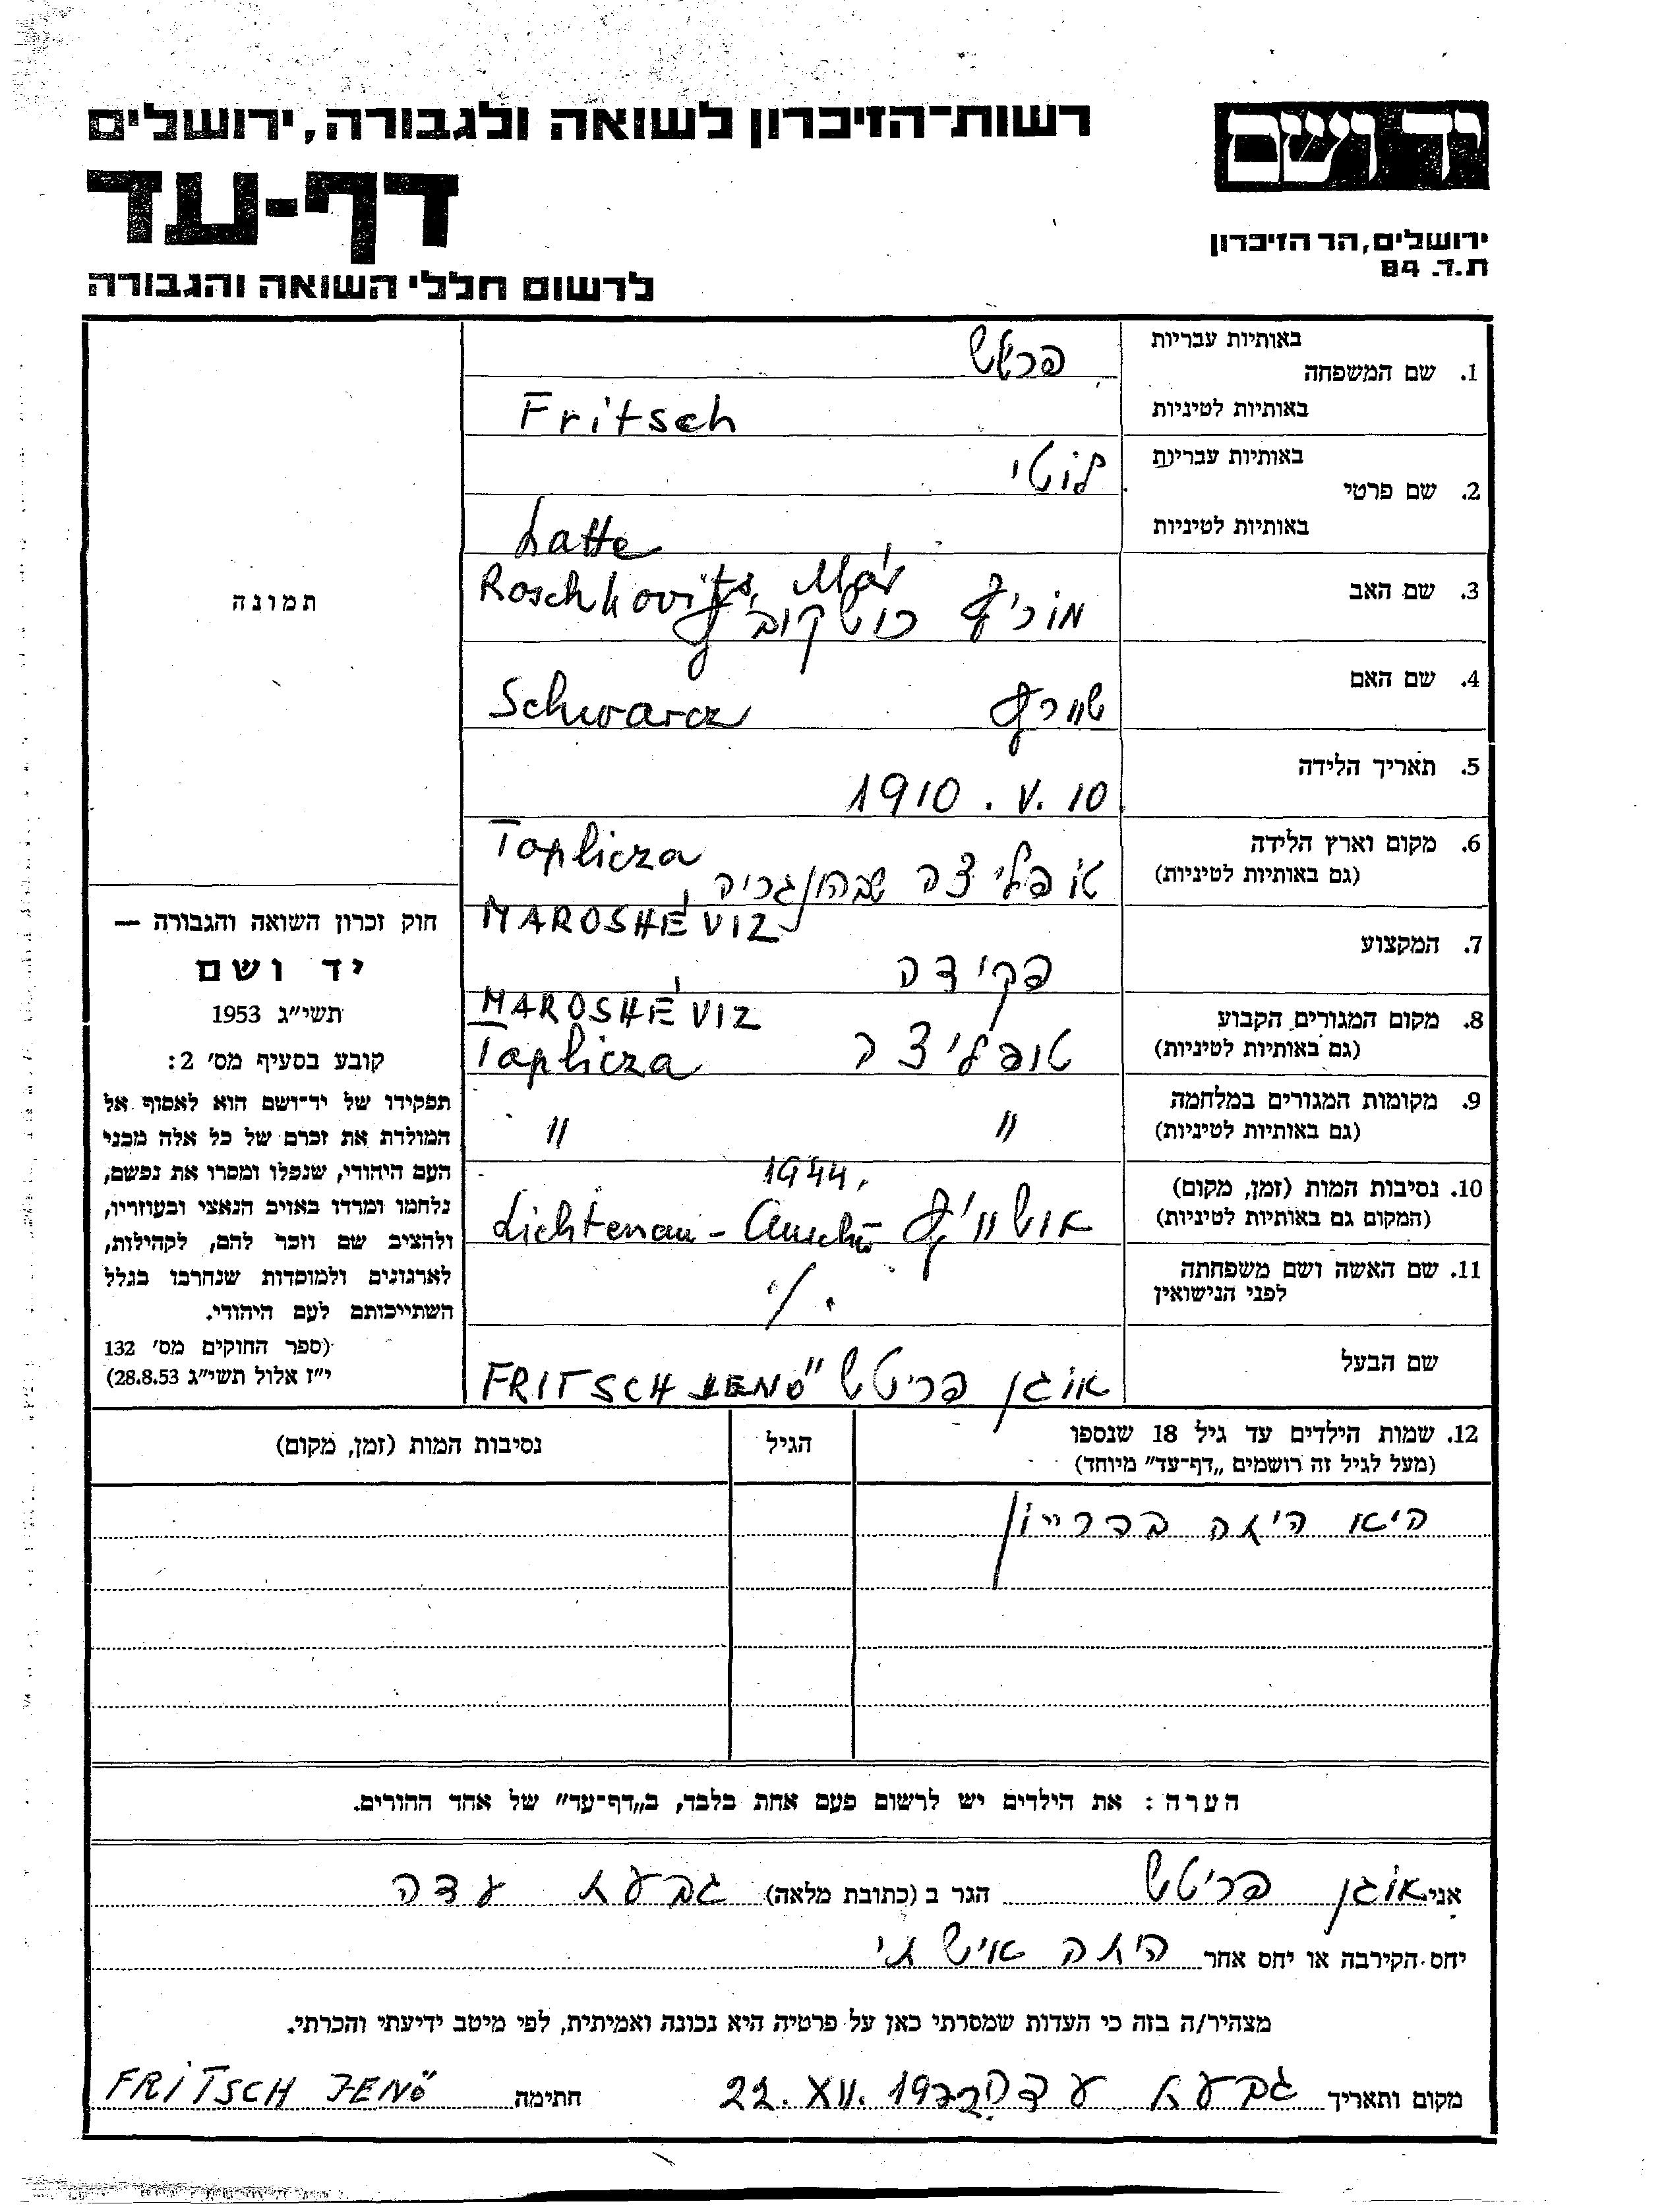 רשות-הזיכרון לשואה ולגבורה, ירושלים
יד ושם
דף-עד
ירושלים, הר הזיכרון
ת.ד. 84
לרשום חללי השואה והגבורה
באותיות עבריות
1. שם המשפחה
פריטש
באותיות לטיניות
Fritsch
באותיות עבריות
2. שם פרטי
לוטי
באותיות לטיניות
Lotte
3. שם האב
Roschkovits, Mór
מוריץ רושקוביץ
4. שם האם
שוורץ Schwarcz
5. תאריך הלידה
1910. V. 10
6. מקום וארץ הלידה
(גם באותיות לטיניות)
Toplicza
טופליצה שבהונגריה
MAROSHÉVIZ
7. המקצוע
פקידה
8. מקום המגורים הקבוע
(גם באותיות לטיניות)
MAROSHÉVIZ
טופליצה Toplicza
9. מקומות המגורים במלחמה
(גם באותיות לטיניות)
" "
10. נסיבות המות (זמן, מקום)
(המקום גם באותיות לטיניות)
1944.
אושוויץ Lichtenau -
11. שם האשה ושם משפחתה
לפני הנישואין
./.
שם הבעל
אוגן פריטש FRITSCH JENŐ
תמונה
חוק זכרון השואה והגבורה —
יד ושם
תשי״ג 1953
קובע בסעיף מס׳ 2:
תפקידו של יד־ושם הוא לאסוף אל
המולדת את זכרם של כל אלה מבני
העם היהודי, שנפלו ומסרו את נפשם,
נלחמו ומרדו באויב הנאצי ובעוזריו,
ולהציב שם וזכר להם, לקהילות,
לארגונים ולמוסדות שנחרבו בגלל
השתייכותם לעם היהודי.
(ספר החוקים מס׳ 132
י״ז אלול תשי״ג 28.8.53)
12. שמות הילדים עד גיל 18 שנספו
(מעל לגיל זה רושמים „דף־עד״ מיוחד)
הגיל
נסיבות המות (זמן, מקום)
היא היתה בהריון
הערה: את הילדים יש לרשום פעם אחת בלבד, ב„דף־עד״ של אחד ההורים.
אני אוגן פריטש הגר ב (כתובת מלאה) גבעת עדה
יחס הקירבה או יחס אחר היתה אישתי
מצהיר/ה בזה כי העדות שמסרתי כאן על פרטיה היא נכונה ואמיתית, לפי מיטב ידיעתי והכרתי.
מקום ותאריך גבעת עדה 22. XII. חתימה FRITSCH JENŐ